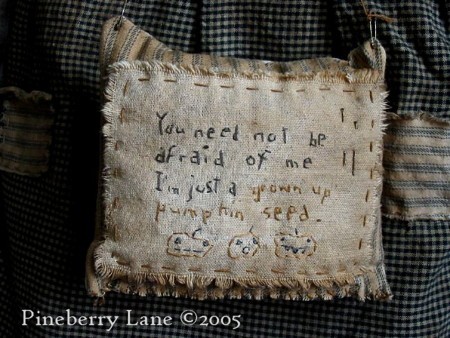 You need not be
afraid of me
I'm just a grown up
pumpkin seed.
Pineberry Lane ©2005